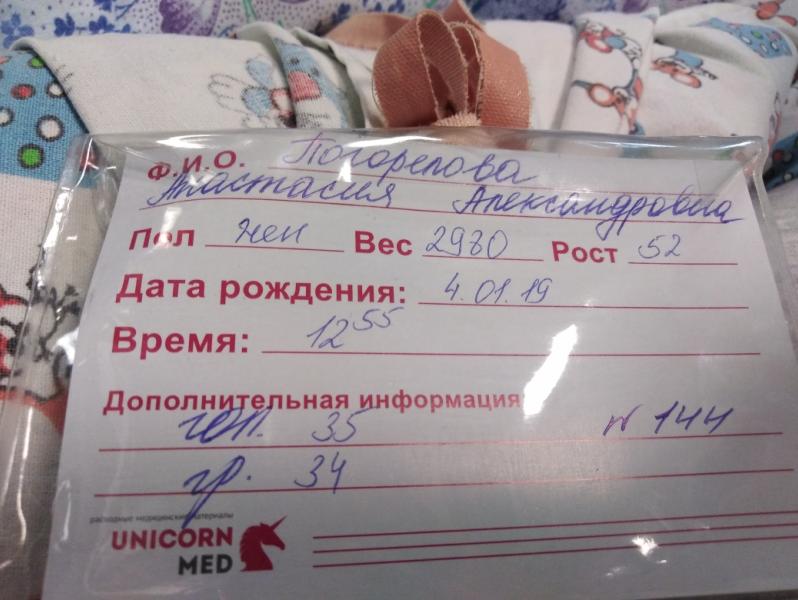 Ф.И.О. Погорелова
Анастасия Александровна
Пол жен Вес 2980 Рост 52
Дата рождения: 4.01.19
Время: 12 55
Дополнительная информация
гол. 35 N 144
гр. 34
расходные медицинские материалы
UNICORN
MED